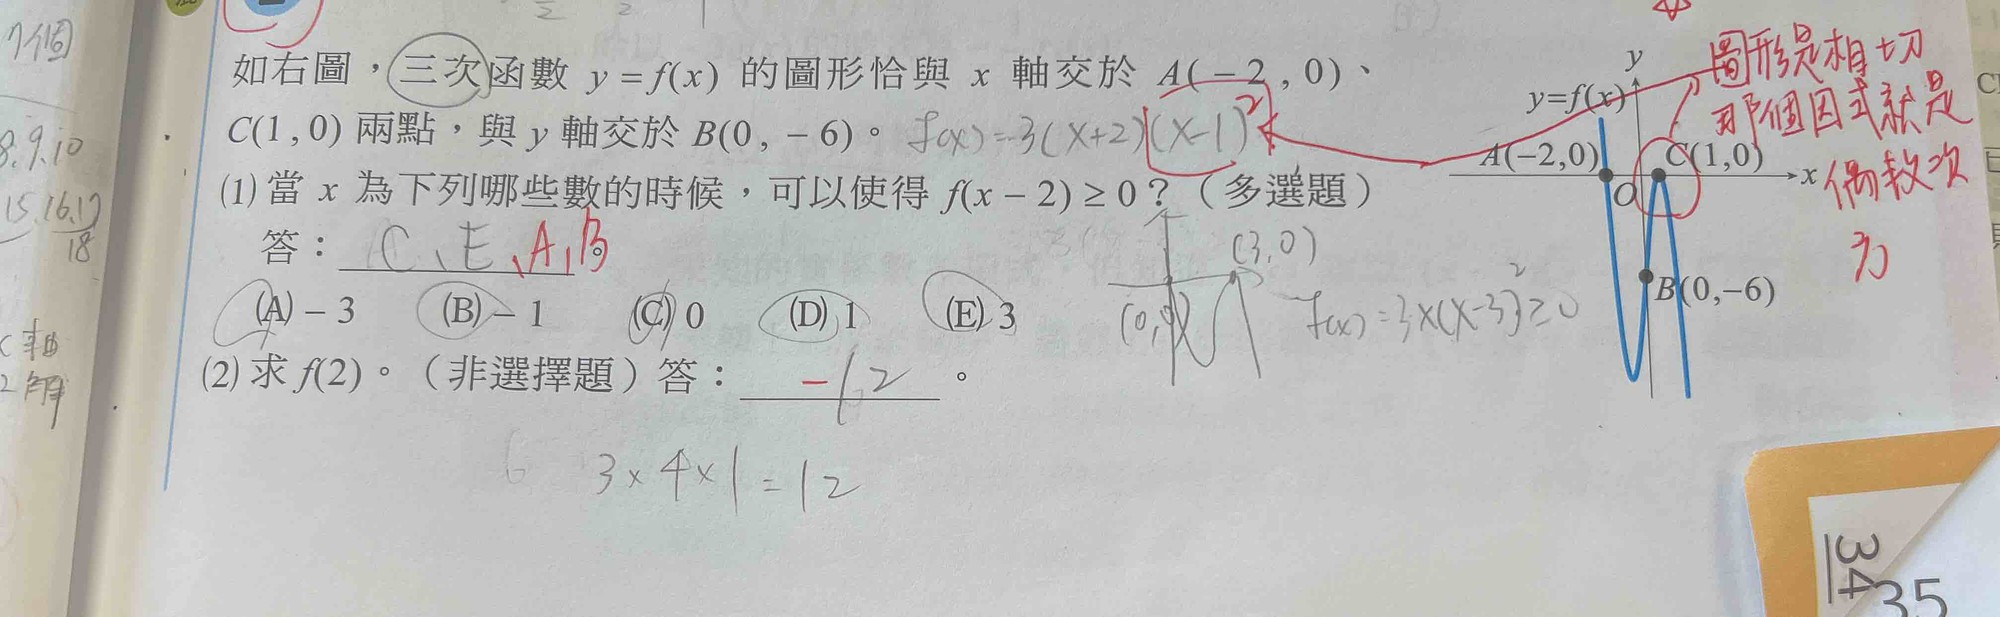 7個
8.9.10
15.16.17
18
軸
2解
如右圖，三次函數 y = f(x) 的圖形恰與 x 軸交於 A( − 2 , 0)、
C(1 , 0) 兩點，與 y 軸交於 B(0 , − 6)。 f(x)=-3(x+2)(x-1)²
(1) 當 x 為下列哪些數的時候，可以使得 f(x − 2) ≥ 0？（多選題）
答： C、E、A、B
(A) − 3 (B) − 1 (C) 0 (D) 1 (E) 3
(2) 求 f(2)。（非選擇題）答： -12 。
3×4×1=12
(3,0)
(0,0)
f(x)=3x(x-3)²≥0
y
y=f(x)
A(−2,0)
C(1,0)
x
O
B(0,−6)
圖形是相切
那個因式就是
偶數次
方
34
35